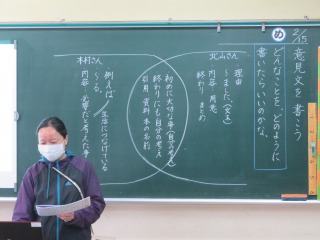 2/15
意見文を書こう
め
どんなことを、どのように
書いたらいいのかな。
北山さん
理由
〜ました(文末)
内容
終わり まとめ
初めに大切な事(自分の考え)
終わりにも自分の考え
引用 資料 本の名前
木村さん
例えば
〜る。
内容 必要だと考えた事
生活につなげている